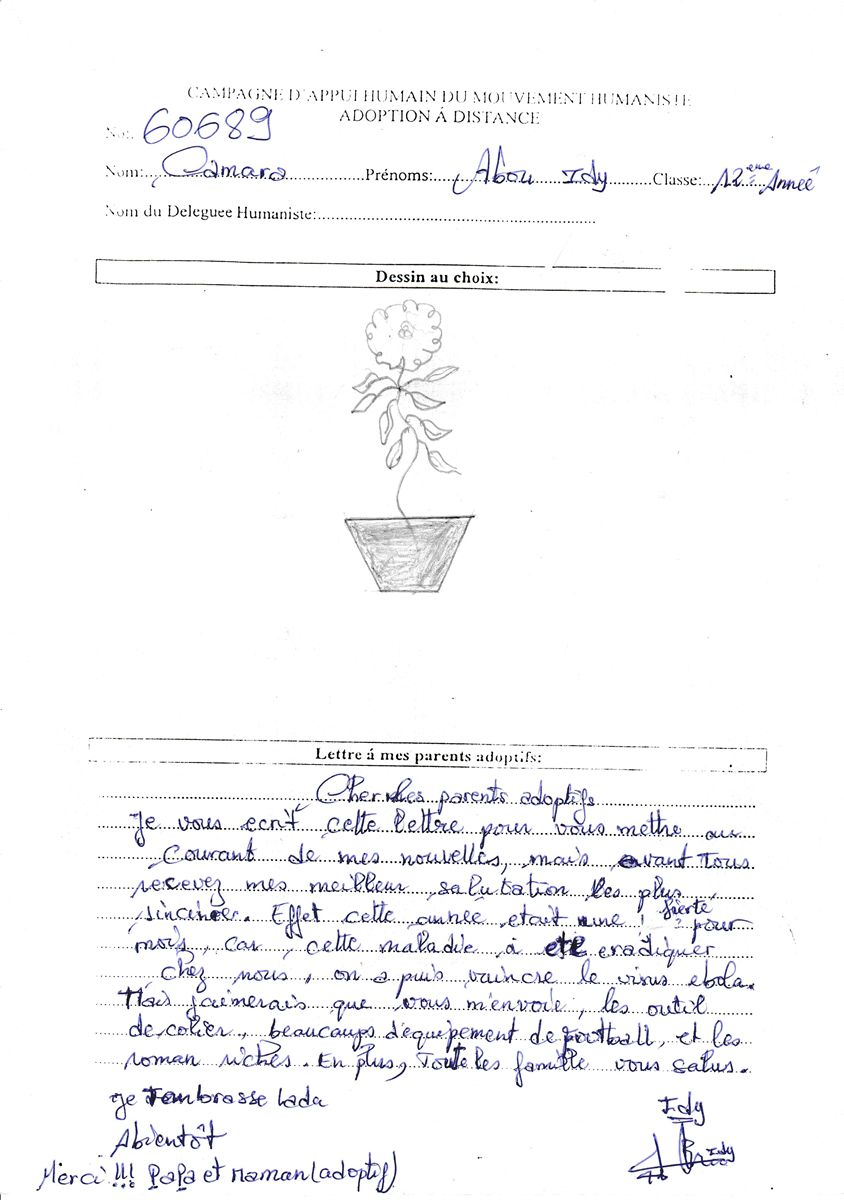 CAMPAGNE D'APPUI HUMAIN DU MOUVEMENT HUMANISTE
ADOPTION Á DISTANCE
No: 60689
Nom: Camara Prénoms: Abou Idy Classe: 12ème Anneé
Nom du Deleguee Humaniste:
Dessin au choix:
Lettre á mes parents adoptifs:
Cher mes parents adoptifs
Je vous ecrit cette lettre pour vous metre au
Courant de mes nouvelles, mais avant Tous
recevez mes meilleur salutation les plus
sincincer. Effet cette année etait une fierté pour
mois, car cette maladie à eté eradiquer
chez nous, on a puis vaincre le virus ebola.
Mais j'aimerais que vous m'envoie, les outil
de colier, beaucoups d'equipement de football, et les
roman riches. En plus, Toute les famille vous salus.
Je T'embrasse lada
Abientôt
Idy
Idy
Merci !!! PaPa et maman (adoptif)